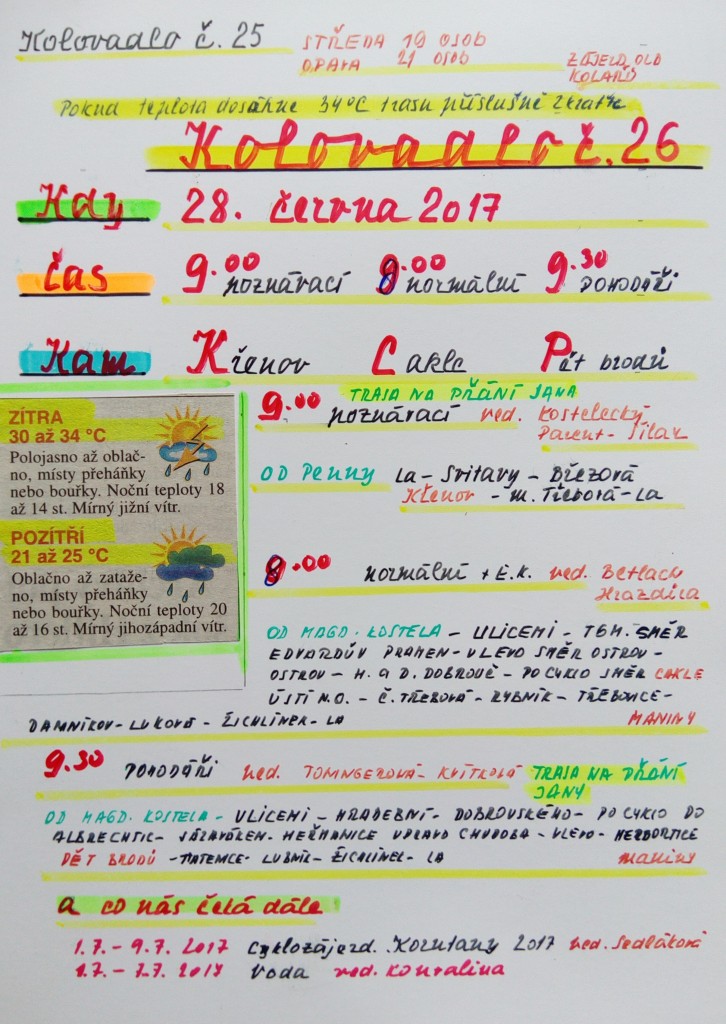 Kolovadlo č. 25
STŘEDA 19 OSOB
OPAVA 21 OSOB
ZÁJEZD OLD
KOLAŘŮ
Pokud teplota dosáhne 34°C trasu příslušně zkraťte
Kolovadlo č. 26
Kdy 28. června 2017
čas 9.00 poznávací 8.00 normální 9.30 POHODÁŘI
Kam Křenov Cakle Pět brodů
TRASA NA PŘÁNÍ JANA
9.00 poznávací ved. Kostelecký
Parent - Sílav
ZÍTRA
30 až 34 °C
Polojasno až oblač-
no, místy přeháňky
nebo bouřky. Noční teploty 18
až 14 st. Mírný jižní vítr.
POZÍTŘÍ
21 až 25 °C
Oblačno až zataže-
no, místy přeháňky
nebo bouřky. Noční teploty 20
až 16 st. Mírný jihozápadní vítr.
OD Penny La - Svitavy - Březová
Křenov - M. Třebová - La
8.00 normální + E.K. ved. Betlach
Hrazdira
OD MAGD. KOSTELA - ULICEMI - TGM. SMĚR
EDVARDŮV PRAMEN - VLEVO SMĚR OSTROV -
OSTROV - H. a D. DOBROUČ - PO CYKLO SMĚR CAKLE
ÚSTÍ N.O. - Č. TŘEBOVÁ - RYBNÍK - TŘEBOVICE -
DAMNÍKOV - LUKOVÁ - ŽICHLÍNEK - LA MANINY
9.30 POHODÁŘI ved. TOMNGEROVÁ - KVÍTKOVÁ TRASA NA PŘÁNÍ
JANY
OD MAGD. KOSTELA - ULICEMI - HRADEBNÍ - DOBROVSKÉHO - PO CYKLO DO
ALBRECHTIC - SÁZAVA HEŘMANICE VPRAVO CHUDOBA - VLEVO - NEPOŘTICE
PĚT BRODŮ - TATENICE - LUBNÍK - ŽICHLÍNEK - LA maniny
a co nás čeká dále
1.7. - 9.7. 2017 Cyklozájezd. Korutany 2017 ved. Sedláková
1.7. - 7.7. 2017 Voda ved. Konvalina